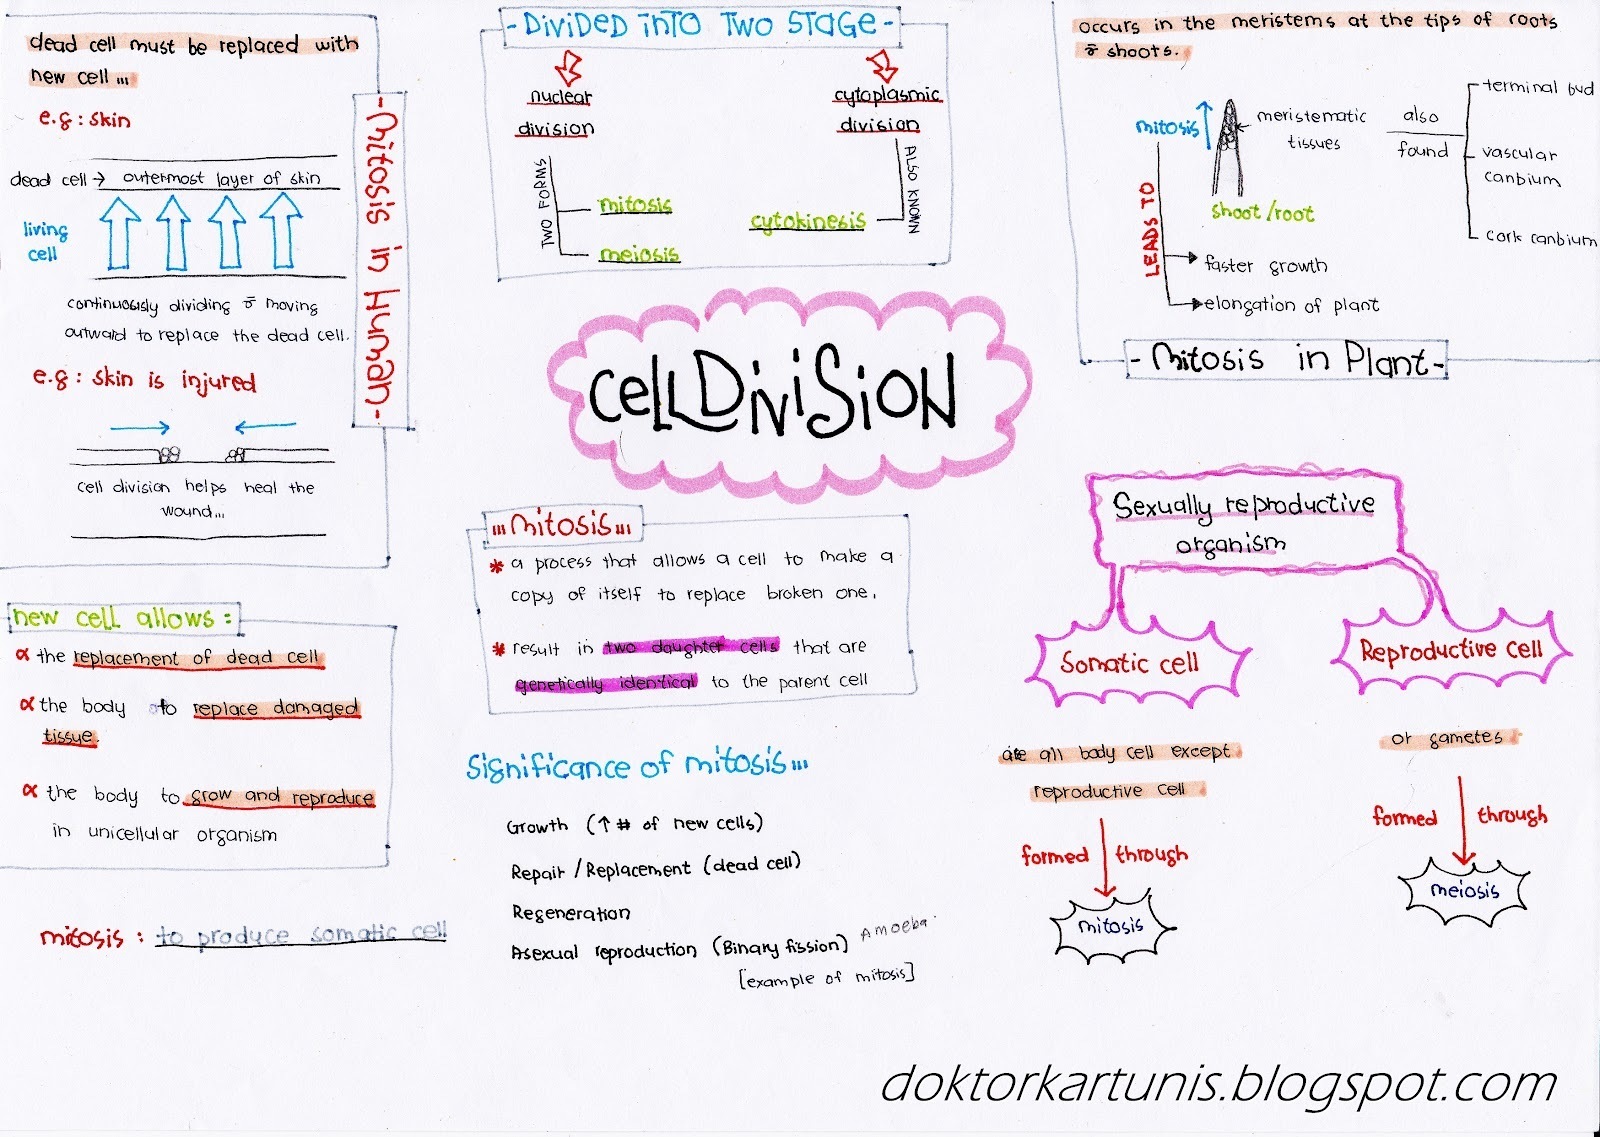 dead cell must be replaced with
new cell ...
e.g : skin
dead cell → outermost layer of skin
living
cell
continuously dividing & moving
outward to replace the dead cell.
e.g : skin is injured
cell division helps heal the
wound...
- Mitosis in Human -
- Divided into two stage -
nuclear
division
TWO FORMS
mitosis
meiosis
cytoplasmic
division
ALSO KNOWN
cytokinesis
occurs in the meristems at the tips of roots
& shoots.
mitosis
meristematic
tissues
also
found
terminal bud
vascular
canbium
cork canbium
shoot/root
LEADS TO
faster growth
elongation of plant
- Mitosis in Plant -
Cell Division
... mitosis ...
* a process that allows a cell to make a
copy of itself to replace broken one.
* result in two daughter cells that are
genetically identical to the parent cell
new cell allows :
∝ the replacement of dead cell
∝ the body to replace damaged
tissue.
∝ the body to grow and reproduce
in unicellular organism
mitosis : to produce somatic cell
Significance of mitosis ...
Growth (↑ # of new cells)
Repair / Replacement (dead cell)
Regeneration
Asexual reproduction (Binary fission) Amoeba
[example of mitosis]
Sexually reproductive
organism
Somatic cell
are all body cell except
reproductive cell
formed through
mitosis
Reproductive cell
or gametes
formed through
meiosis
doktorkartunis.blogspot.com